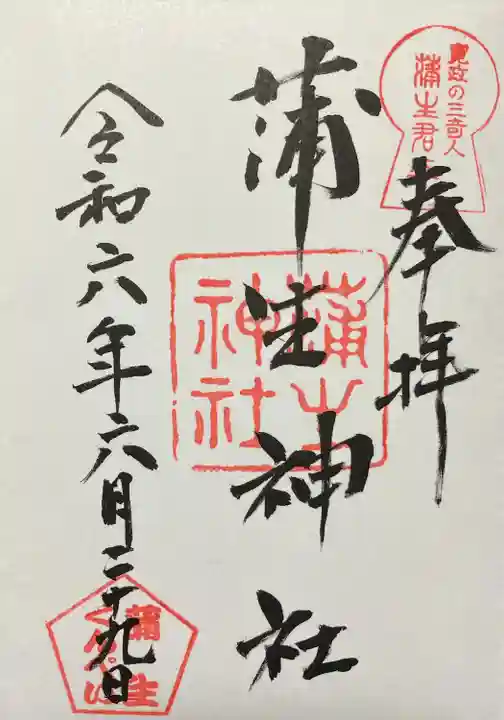 奉拝
寛政の三奇人
蒲生君
蒲生神社
蒲生
神社
令和六年六月二十九日
蒲生